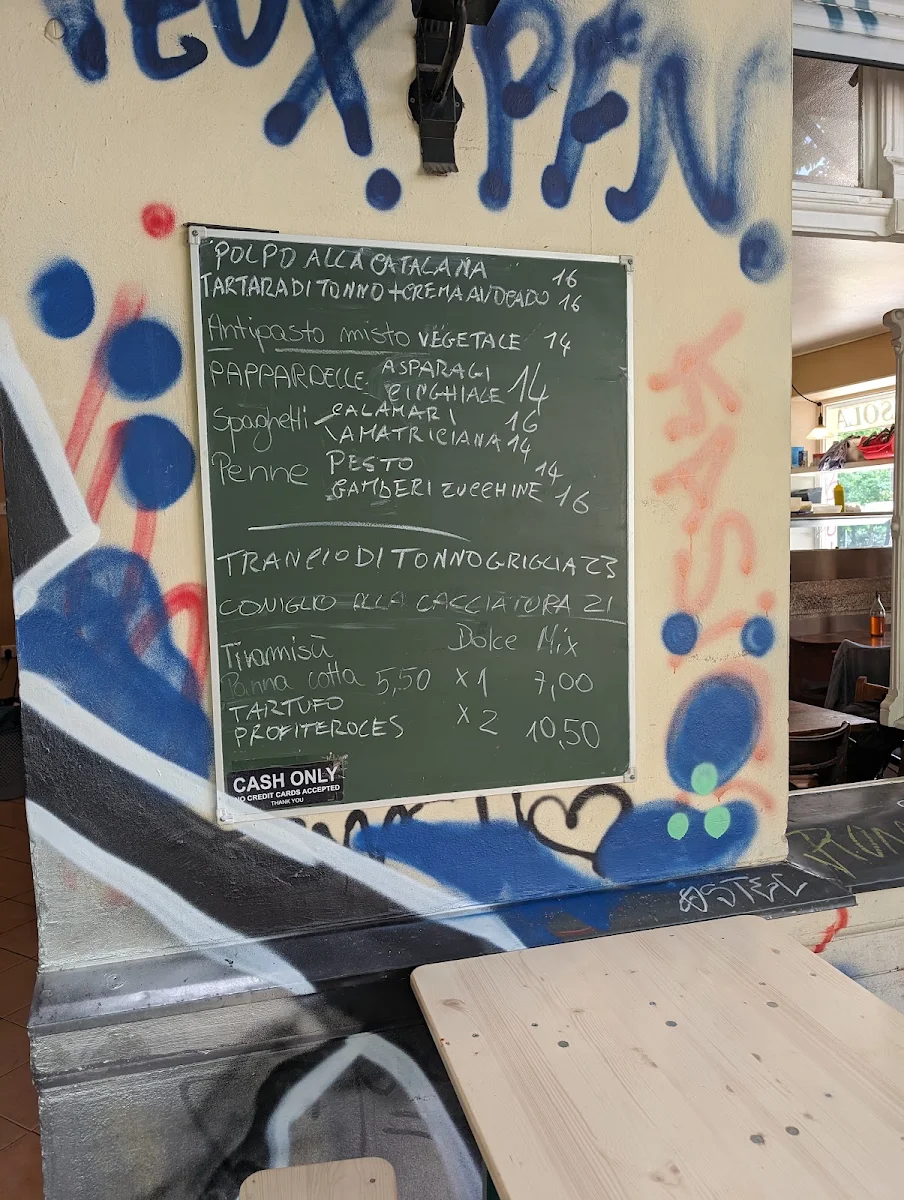 POLPO ALLA CATALANA 16
TARTARA DI TONNO + CREMA AVOCADO 16
Antipasto misto VEGETALE 14
PAPPARDELLE ASPARAGI
CINGHIALE 14
Spaghetti CALAMARI 16
AMATRICIANA 14
Penne PESTO 14
GAMBERI ZUCCHINE 16
TRANCIO DI TONNO GRIGLIA 23
CONIGLIO ALLA CACCIATORA 21
Tiramisù
Dolce Mix
Panna cotta 5,50 x1 7,00
TARTUFO
PROFITEROCES x2 10,50
CASH ONLY
NO CREDIT CARDS ACCEPTED
THANK YOU